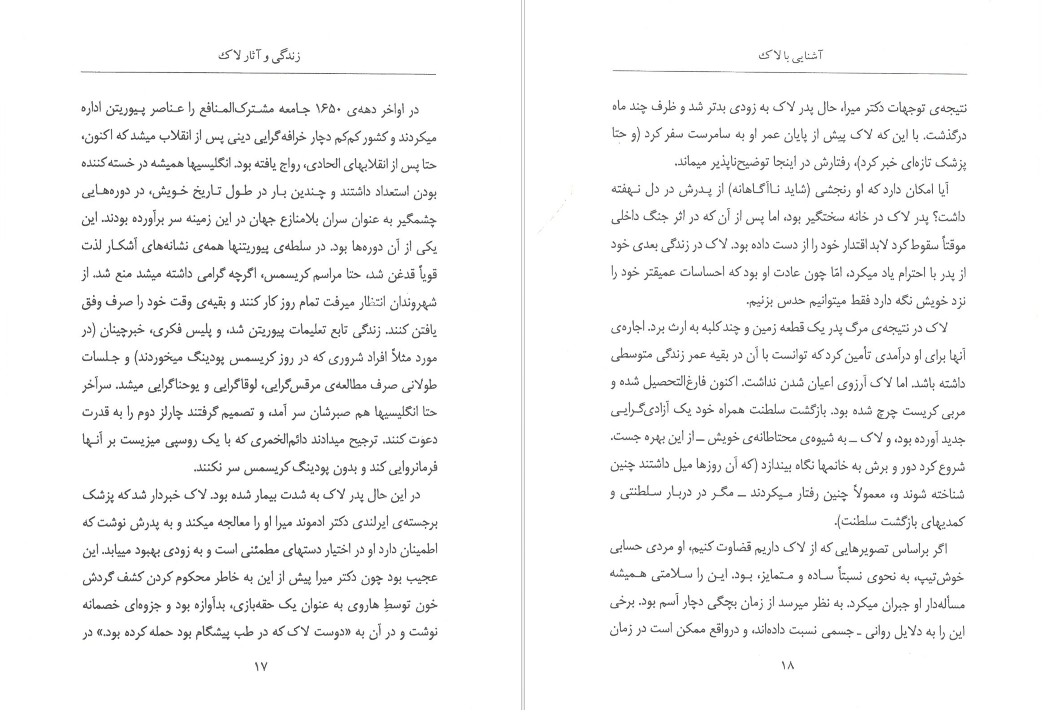 زندگی و آثار لاک
در اواخر دهه‌ی ۱۶۵۰ جامعه مشترک‌المنافع را عناصر پیوریتن اداره
میکردند و کشور کم‌کم دچار خرافه‌گرایی دینی پس از انقلاب میشد که اکنون،
حتا پس از انقلابهای الحادی، رواج یافته بود. انگلیسیها همیشه در خسته‌کننده
بودن استعداد داشتند و چندین بار در طول تاریخ خویش، در دوره‌هایی
چشمگیر به عنوان سران بلامنازع جهان در این زمینه سر برآورده بودند. این
یکی از آن دوره‌ها بود. در سلطه‌ی پیوریتنها همه‌ی نشانه‌های آشکار لذت
قویاً قدغن شد، حتا مراسم کریسمس، اگرچه گرامی داشته میشد منع شد. از
شهروندان انتظار میرفت تمام روز کار کنند و بقیه‌ی وقت خود را صرف وفق
یافتن کنند. زندگی تابع تعلیمات پیوریتن شد، و پلیس فکری، خبرچینان (در
مورد مثلاً افراد شروری که در روز کریسمس پودینگ میخوردند) و جلسات
طولانی صرف مطالعه‌ی مرقس‌گرایی، لوقاگرایی و یوحناگرایی میشد. سرآخر
حتا انگلیسیها هم صبرشان سر آمد، و تصمیم گرفتند چارلز دوم را به قدرت
دعوت کنند. ترجیح میدادند دائم‌الخمری که با یک روسپی میزیست بر آنها
فرمانروایی کند و بدون پودینگ کریسمس سر نکنند.
در این حال پدر لاک به شدت بیمار شده بود. لاک خبردار شد که پزشک
برجسته‌ی ایرلندی دکتر ادموند میرا او را معالجه میکند و به پدرش نوشت که
اطمینان دارد او در اختیار دستهای مطمئنی است و به زودی بهبود مییابد. این
عجیب بود چون دکتر میرا پیش از این به خاطر محکوم کردن کشف گردش
خون توسطِ هاروی به عنوان یک حقه‌بازی، بدآوازه بود و جزوه‌ای خصمانه
نوشت و در آن به «دوست لاک که در طب پیشگام بود حمله کرده بود.» در
۱۷
آشنایی با لاک
نتیجه‌ی توجهات دکتر میرا، حال پدر لاک به زودی بدتر شد و ظرف چند ماه
درگذشت. با این که لاک پیش از پایان عمر او به سامرست سفر کرد (و حتا
پزشک تازه‌ای خبر کرد)، رفتارش در اینجا توضیح‌ناپذیر میماند.
آیا امکان دارد که او رنجشی (شاید ناآگاهانه) از پدرش در دل نهفته
داشت؟ پدر لاک در خانه سختگیر بود، اما پس از آن که در اثر جنگ داخلی
موقتاً سقوط کرد لابد اقتدار خود را از دست داده بود. لاک در زندگی بعدی خود
از پدر با احترام یاد میکرد، امّا چون عادت او بود که احساسات عمیقتر خود را
نزد خویش نگه دارد فقط میتوانیم حدس بزنیم.
لاک در نتیجه‌ی مرگ پدر یک قطعه زمین و چند کلبه به ارث برد. اجاره‌ی
آنها برای او درآمدی تأمین کرد که توانست با آن در بقیه عمر زندگی متوسطی
داشته باشد. اما لاک آرزوی اعیان شدن نداشت. اکنون فارغ‌التحصیل شده و
مربی کریست چرچ شده بود. بازگشت سلطنت همراه خود یک آزادی‌گرایی
جدید آورده بود، و لاک ــ به شیوه‌ی محتاطانه‌ی خویش ــ از این بهره جست.
شروع کرد دور و برش به خانمها نگاه بیندازد (که آن روزها میل داشتند چنین
شناخته شوند و، معمولاً چنین رفتار میکردند ــ مگر در دربار سلطنتی و
کمدیهای بازگشت سلطنت).
اگر براساس تصویرهایی که از لاک داریم قضاوت کنیم، او مردی حسابی
خوش‌تیپ، به نحوی نسبتاً ساده و متمایز، بود. این را سلامتی همیشه
مسأله‌دار او جبران میکرد. به نظر میرسد از زمان بچگی دچار آسم بود. برخی
این را به دلایل روانی ـ جسمی نسبت داده‌اند، و درواقع ممکن است در زمان
۱۸